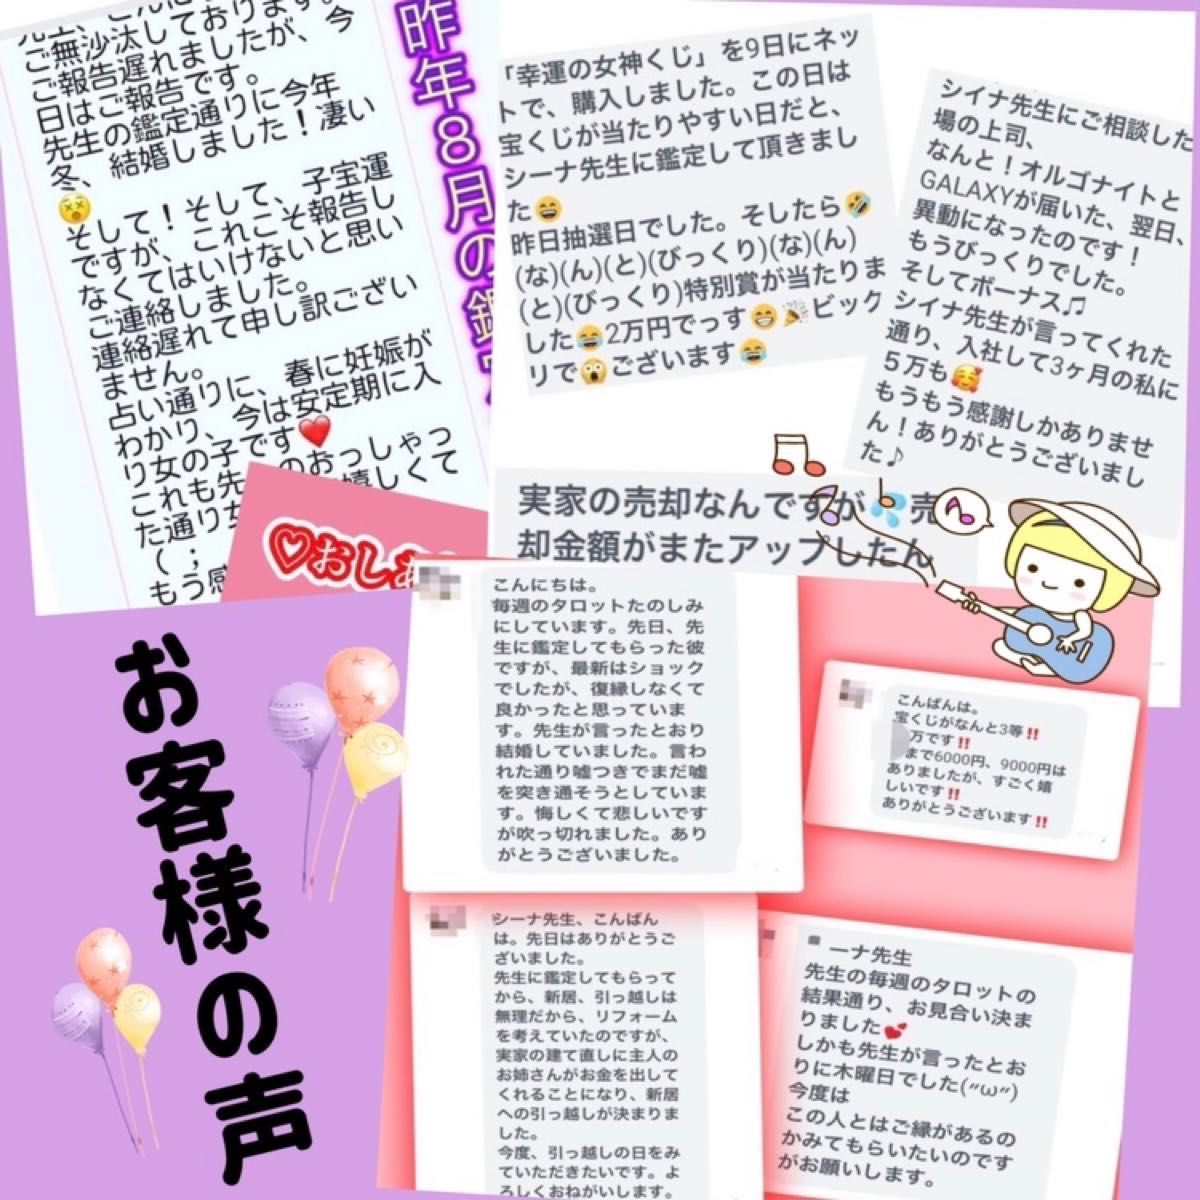 ご無沙汰しております。
ご報告遅れましたが、今
日はご報告です。
先生の鑑定通りに今年
冬、結婚しました！凄い
😵
そして！そして、子宝運
ですが、これこそ報告し
なくてはいけないと思い
ご連絡しました。
連絡遅れて申し訳ござい
ません。
占い通りに、春に妊娠が
わかり、今は安定期に入
り女の子です❤️
これも先のおっしゃっ
た通り嬉しくて
(；
もう感
昨年8月の鑑
♡おしあ
「幸運の女神くじ」を9日にネッ
トで、購入しました。この日は
宝くじが当たりやすい日だと、
シーナ先生に鑑定して頂きまし
た😄
昨日抽選日でした。そしたら🤣
(な)(ん)(と)(びっくり)(な)(ん)
(と)(びっくり)特別賞が当たりま
した😂2万円でっす😁🎉ビック
リで😱ございます😂
シイナ先生にご相談した
場の上司、
なんと！オルゴナイトと
GALAXYが届いた、翌日、
異動になったのです！
もうびっくりでした。
そしてボーナス♫
シイナ先生が言ってくれた
通り、入社して3ヶ月の私に
５万も🥰
もうもう感謝しかありませ
ん！ありがとうございまし
た♪
実家の売却なんですが💦売
却金額がまたアップしたん
こんにちは。
毎週のタロットたのしみ
にしています。先日、先
生に鑑定してもらった彼
ですが、最新はショック
でしたが、復縁しなくて
良かったと思っていま
す。先生が言ったとおり
結婚していました。言わ
れた通り嘘つきでまだ嘘
を突き通そうとしていま
す。悔しくて悲しいです
が吹っ切れました。あり
がとうございました。
こんばんは。
宝くじがなんと3等‼️
万です‼️
まで6000円、9000円は
ありましたが、すごく嬉
しいです‼️
ありがとうございます‼️
お客様の声
シーナ先生、こんばん
は。先日はありがとうご
ざいました。
先生に鑑定してもらって
から、新居、引っ越しは
無理だから、リフォーム
を考えていたのですが、
実家の建て直しに主人の
お姉さんがお金を出して
くれることになり、新居
への引っ越しが決まりま
した。
今度、引っ越しの日をみ
ていただきたいです。よ
ろしくおねがいします。
ーナ先生
先生の毎週のタロットの
結果通り、お見合い決ま
りました💕
しかも先生が言ったとお
りに木曜日でした(〃ω〃)
今度は
この人とはご縁があるの
かみてもらいたいのです
がお願いします。